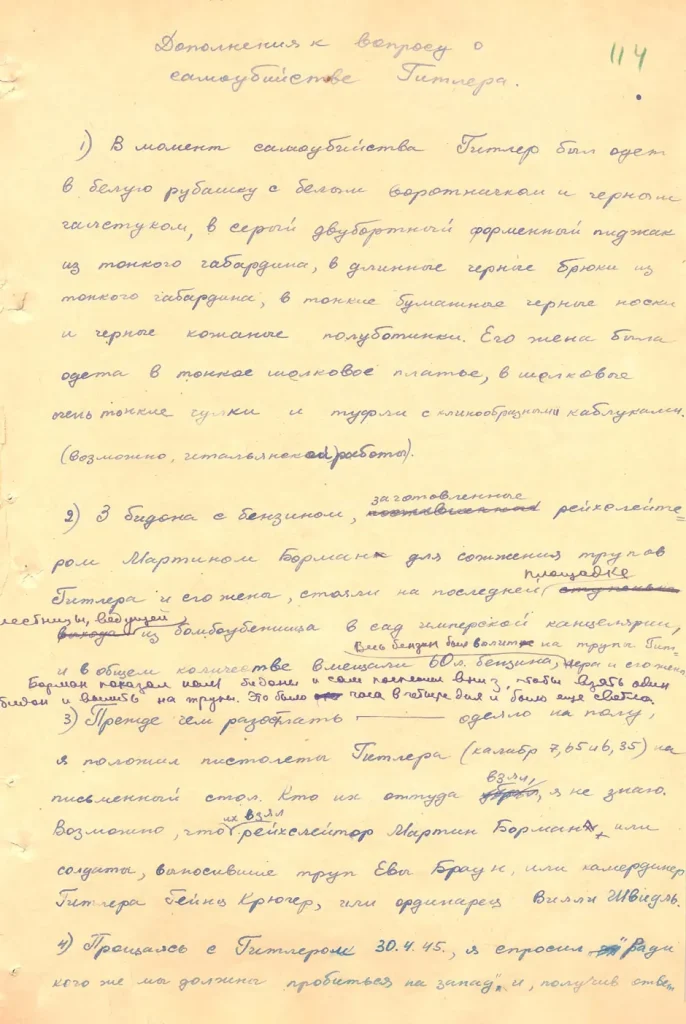 Дополнения к вопросу о
самоубийстве Гитлера.
114
1) В момент самоубийства Гитлер был одет
в белую рубашку с белым воротничком и черным
галстуком, в серый двубортный форменный пиджак
из тонкого габардина, в длинные черные брюки из
тонкого габардина, в тонкие бумажные черные носки
и черные кожаные полуботинки. Его жена была
одета в тонкое шелковое платье, в шелковые
очень тонкие чулки и туфли с клинообразными каблуками.
(возможно, итальянской работы).
заготовленные
2) 3 бидона с бензином, рейхслейте-
ром Мартином Борманом для сожжения трупов
площадке
Гитлера и его жены, стояли на последней
лестницы, ведущей
из бомбоубежища в сад имперской канцелярии,
Весь бензин был вылит на трупы Гит-
и в общем количестве вмещали 60 л. бензина, лера и его жены
Борман показал мне бидоны и сам поспешил вниз, чтобы взять один
бидон и вылить на трупы. Это было часа в четыре дня и было еще светло.
3) Прежде чем разостлать одеяло на полу,
я положил пистолеты Гитлера (калибр 7,65 и 6,35) на
взял,
письменный стол. Кто их оттуда я не знаю.
их взял
Возможно, что рейхслейтор Мартин Борман, или
солдаты, выносившие труп Евы Браун, или камердинер
Гитлера Гейнц Крюгер, или ординарец Вилли Швидль.
4) Прощаясь с Гитлером 30.4.45., я спросил "Ради
кого же мы должны пробиться на запад", и, получив ответ